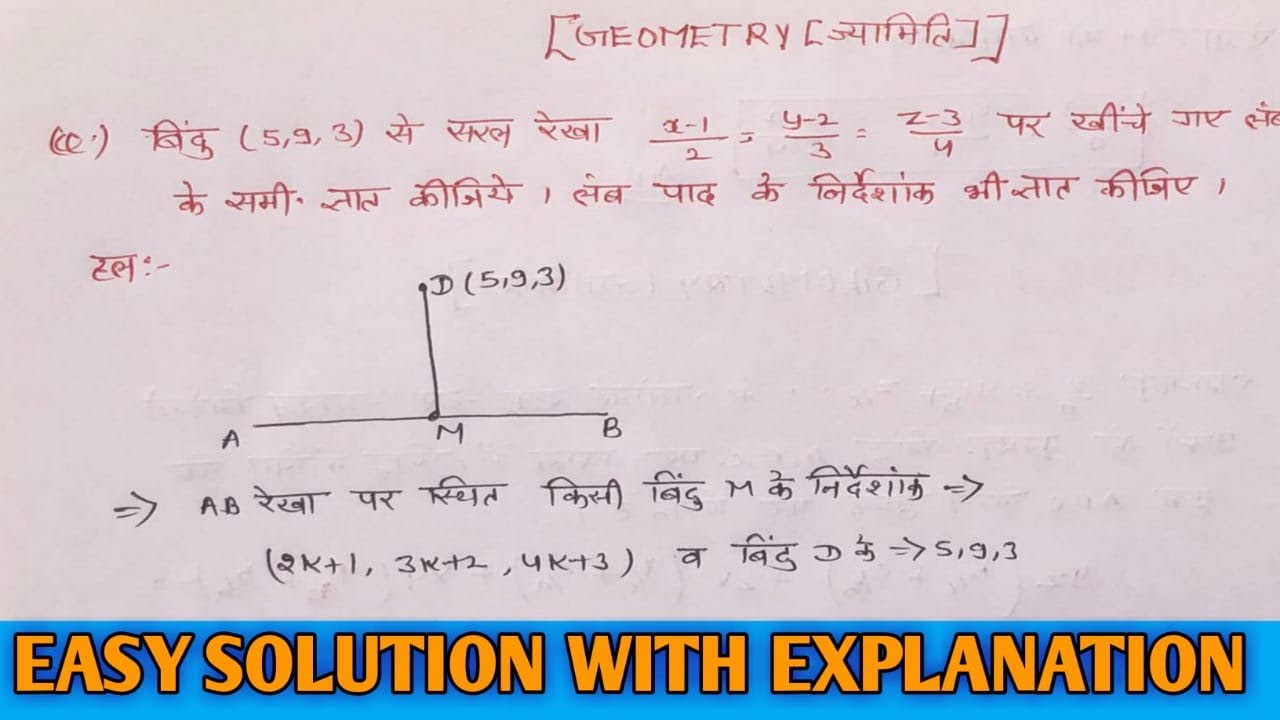 [GEOMETRY [ज्यामिति]]
(Q.) बिंदु (5,9,3) से सरल रेखा x-1/2 = y-2/3 = z-3/4 पर खींचे गए लंब
के समी. ज्ञात कीजिये । लंब पाद के निर्देशांक भी ज्ञात कीजिए ।
हल:-
D(5,9,3)
A M B
=> AB रेखा पर स्थित किसी बिंदु M के निर्देशांक =>
(2K+1, 3K+2, 4K+3) व बिंदु D के => 5,9,3
EASY SOLUTION WITH EXPLANATION